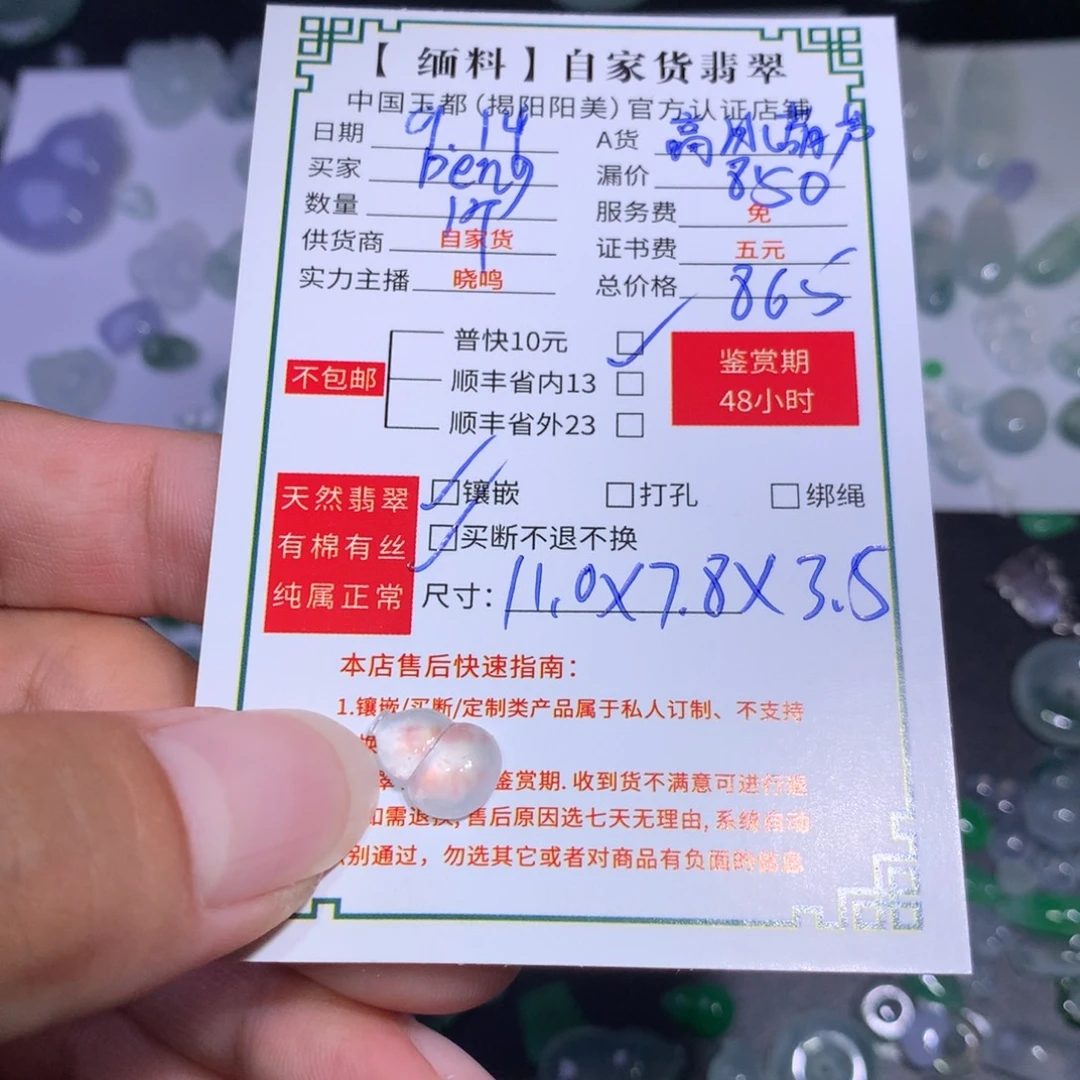 【缅料】自家货翡翠
中国玉都(揭阳阳美)官方认证店铺
日期 9.14 A货 高冰葫芦
买家 beng 漏价 850
数量 1件 服务费 免
供货商 自家货 证书费 五元
实力主播 晓鸣 总价格 865
不包邮
普快10元
顺丰省内13
顺丰省外23
鉴赏期
48小时
天然翡翠
有棉有丝
纯属正常
镶嵌 打孔 绑绳
买断不退不换
尺寸: 11.0X7.8X3.5
本店售后快速指南:
1.镶嵌/买断/定制类产品属于私人订制、不支持
换
翠 鉴赏期.收到货不满意可进行退
如需退换,售后原因选七天无理由,系统自动
识别通过，勿选其它或者对商品有负面的信息